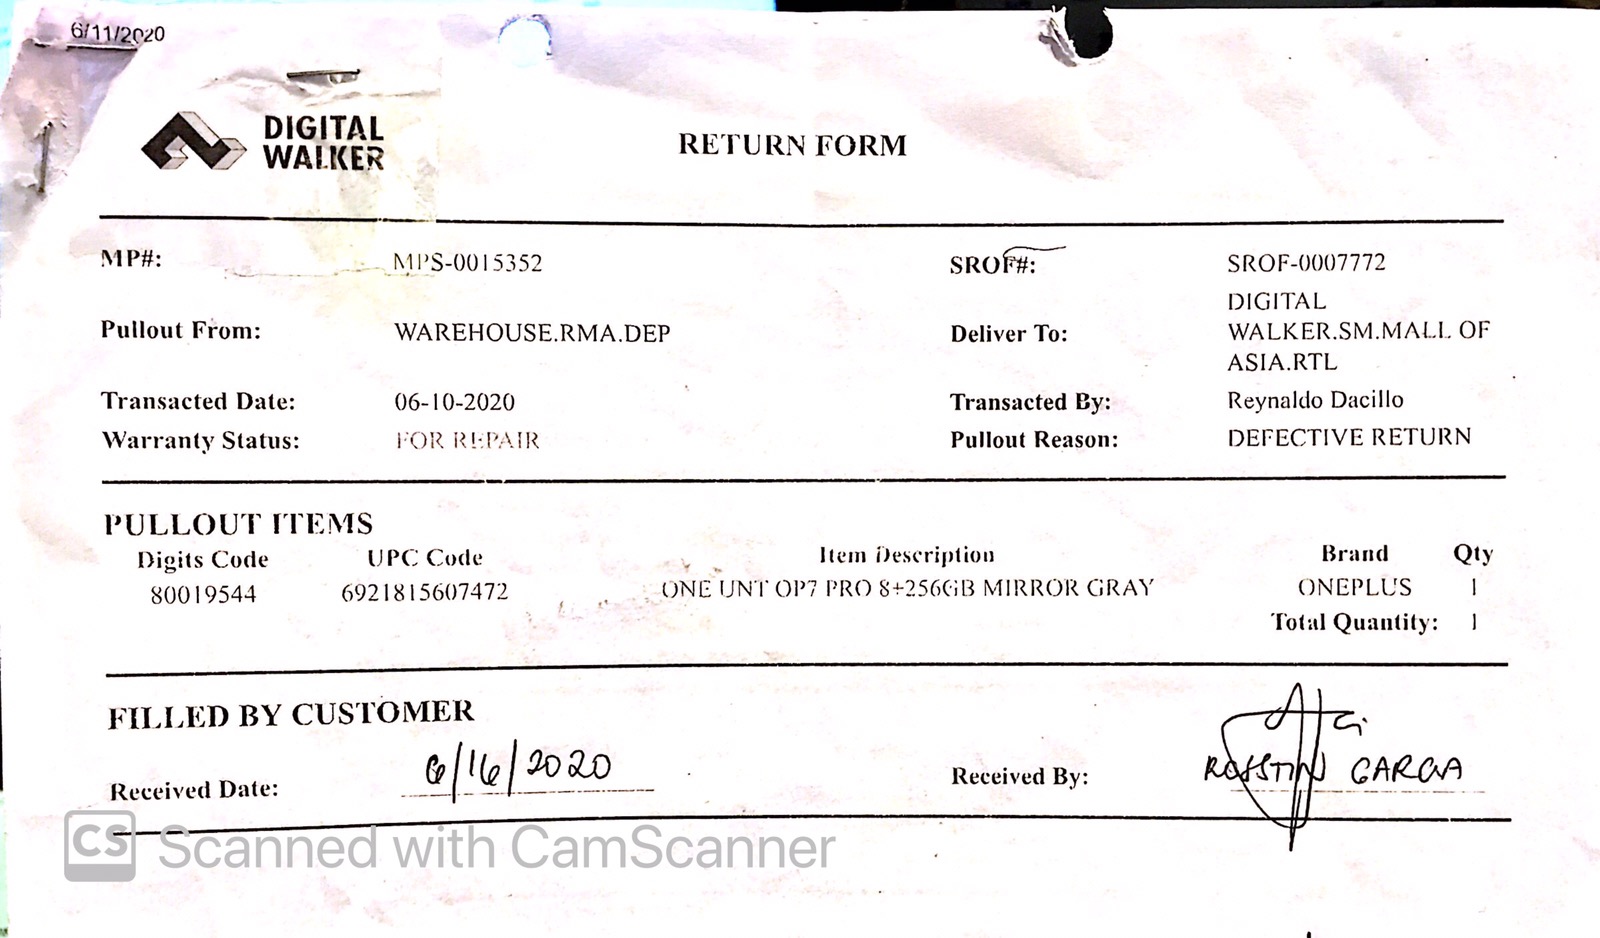 6/11/2020
DIGITAL
WALKER
RETURN FORM
MP#: MPS-0015352 SROF#: SROF-0007772
Pullout From: WAREHOUSE.RMA.DEP Deliver To: DIGITAL
WALKER.SM.MALL OF
ASIA.RTL
Transacted Date: 06-10-2020 Transacted By: Reynaldo Dacillo
Warranty Status: FOR REPAIR Pullout Reason: DEFECTIVE RETURN
PULLOUT ITEMS
Digits Code UPC Code Item Description Brand Qty
80019544 6921815607472 ONE UNT OP7 PRO 8+256GB MIRROR GRAY ONEPLUS 1
Total Quantity: 1
FILLED BY CUSTOMER
Received Date: 6/16/2020 Received By: GARCIA
CS Scanned with CamScanner